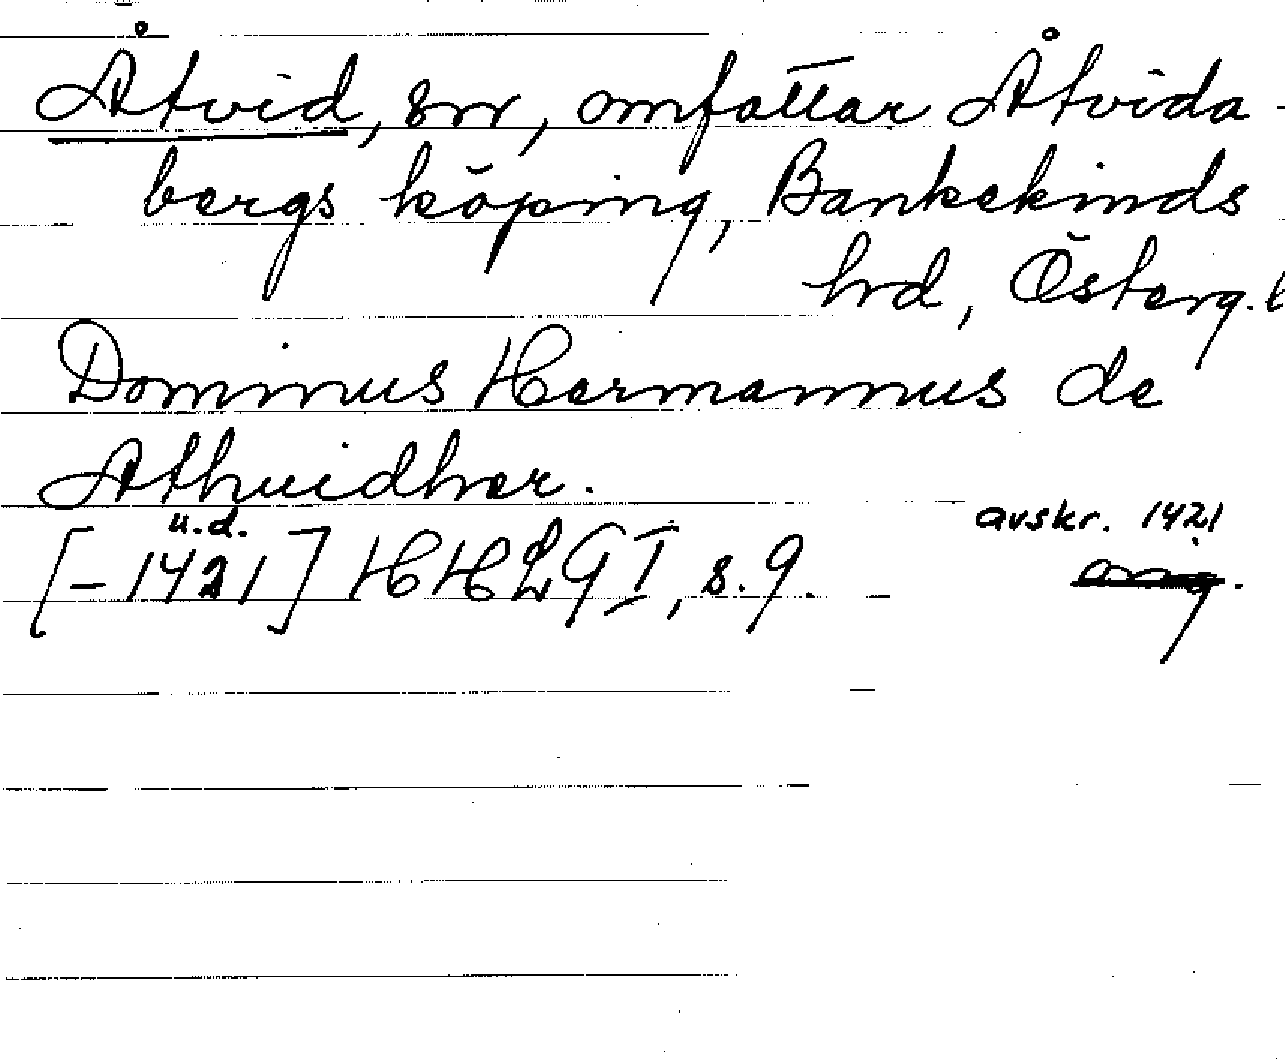 Åtvid, sn, omfattar Åtvida-
bergs köping, Bankekinds
hrd, Österg.l
Dominus Hermannus de
Athuidher.
u.d. avskr. 1421
[-1421] HHLG I, s. 9. orig.